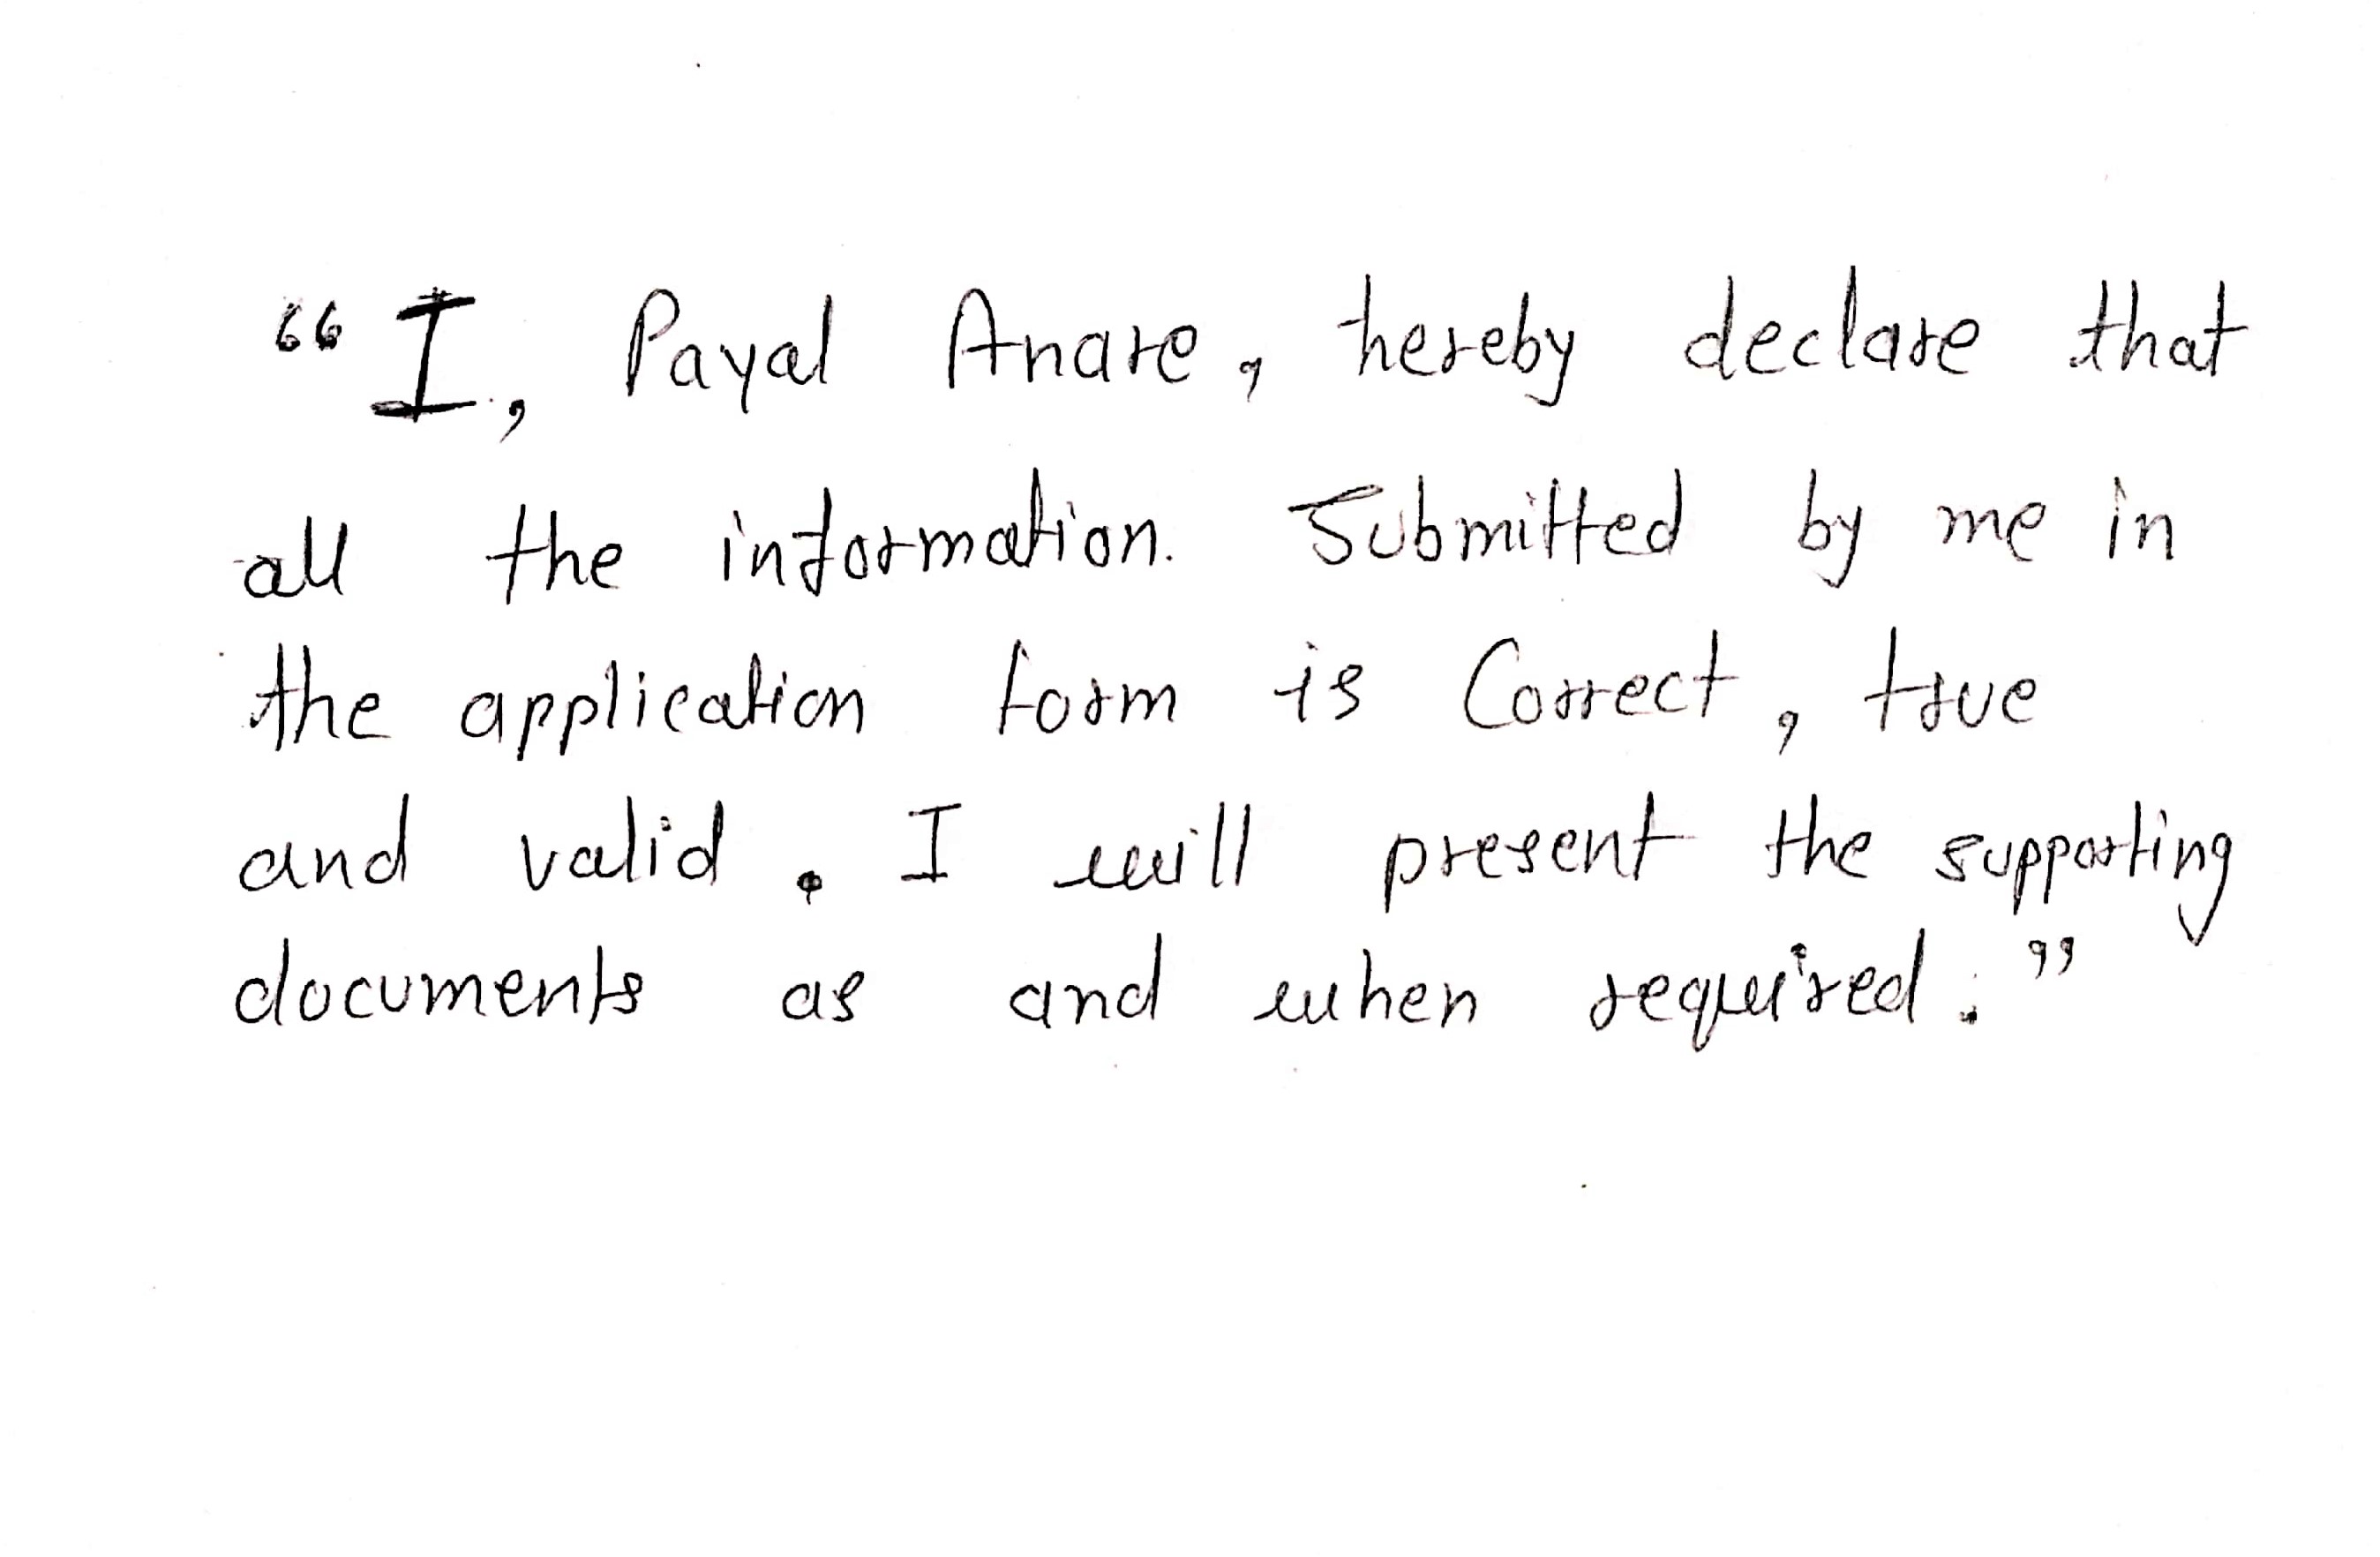 “I, Payal Anare, hereby declare that
all the information. Submitted by me in
the application form is Correct, true
and valid. I will present the supporting
documents as and when required.”